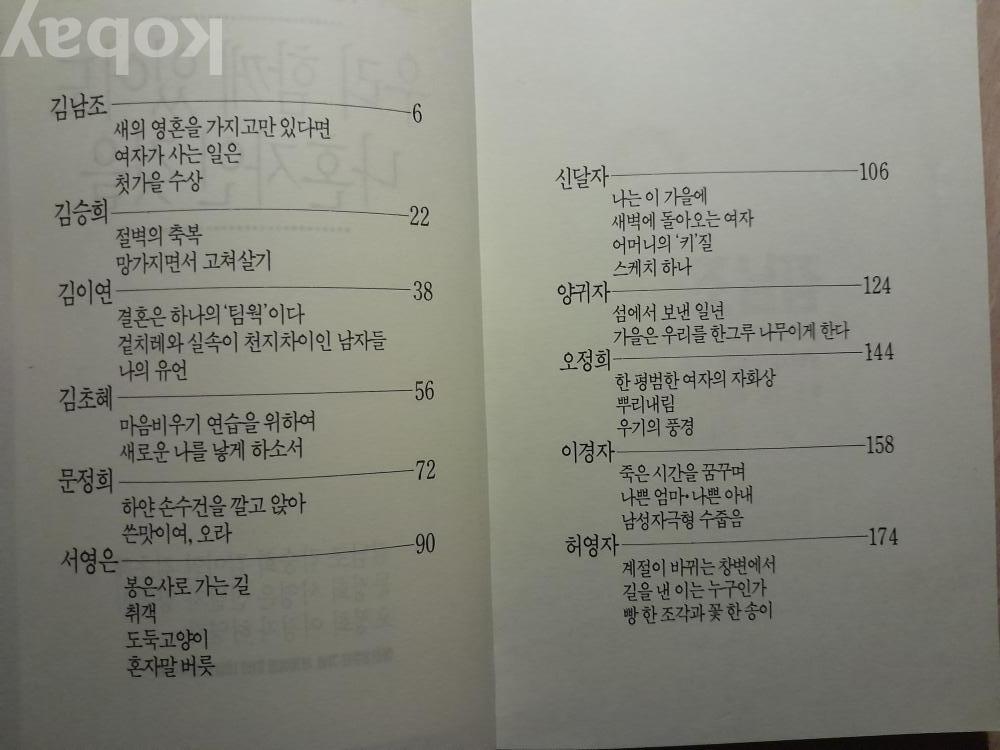 kobay
김남조 6
새의 영혼을 가지고만 있다면
여자가 사는 일은
첫가을 수상
김승희 22
절벽의 축복
망가지면서 고쳐살기
김이연 38
결혼은 하나의 '팀웍'이다
겉치레와 실속이 천지차이인 남자들
나의 유언
김초혜 56
마음비우기 연습을 위하여
새로운 나를 낳게 하소서
문정희 72
하얀 손수건을 깔고 앉아
쓴맛이여, 오라
서영은 90
봉은사로 가는 길
취객
도둑고양이
혼자말 버릇
신달자 106
나는 이 가을에
새벽에 돌아오는 여자
어머니의 '키'질
스케치 하나
양귀자 124
섬에서 보낸 일년
가을은 우리를 한그루 나무이게 한다
오정희 144
한 평범한 여자의 자화상
뿌리내림
우기의 풍경
이경자 158
죽은 시간을 꿈꾸며
나쁜 엄마·나쁜 아내
남성자극형 수줍음
허영자 174
계절이 바뀌는 창변에서
길을 낸 이는 누구인가
빵 한 조각과 꽃 한 송이